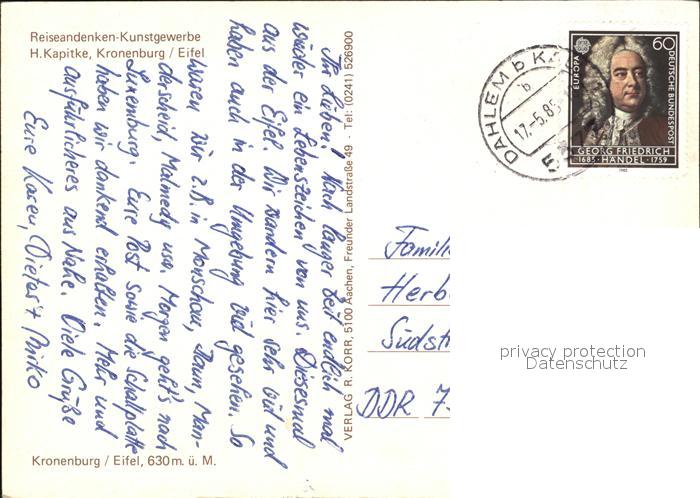 Reiseandenken-Kunstgewerbe
H. Kapitke, Kronenburg / Eifel
Ihr Lieben! Nach langer Zeit endlich mal
wieder ein Lebenszeichen von uns. Diesesmal
aus der Eifel. Wir wandern hier sehr viel und
haben auch in der Umgebung viel gesehen. So
waren wir z.B. in Monschau, Daun, Man-
derscheid, Malmedy usw. Morgen geht's nach
Luxemburg. Eure Post sowie die Schallplatte
haben wir dankend erhalten. Mehr und
ausführlicheres aus Nahe. Viele Grüße
Eure Karen, Dieter + Mirko
Kronenburg / Eifel, 630 m. ü. M.
VERLAG R. KORR, 5100 Aachen, Freunder Landstraße 49 · Tel.: (0241) 526900
DAHLEM b K
b
17.-5.85
EUROPA
60
DEUTSCHE BUNDESPOST
GEORG FRIEDRICH
1685 HÄNDEL 1759
1985
Famili
Herb
Südst
DDR 7
privacy protection
Datenschutz